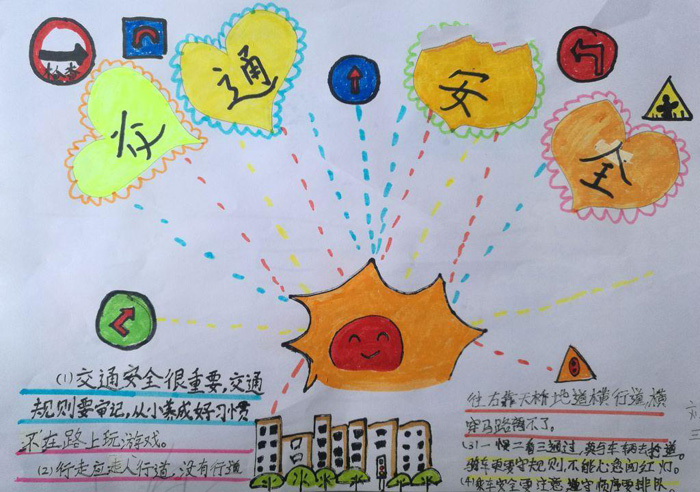 交通安全
(1)交通安全很重要,交通
规则要牢记,从小养成好习惯
不在路上玩游戏。
(2)行走应走人行道,没有行道
往右靠天桥地道横行道,横
穿马路很不了。
(3)一慢二看三通过,莫与车辆去抢道。
骑车更要守规则,不能心急闯红灯。
(4)乘车安全要注意,遵守顺序要排队
六三